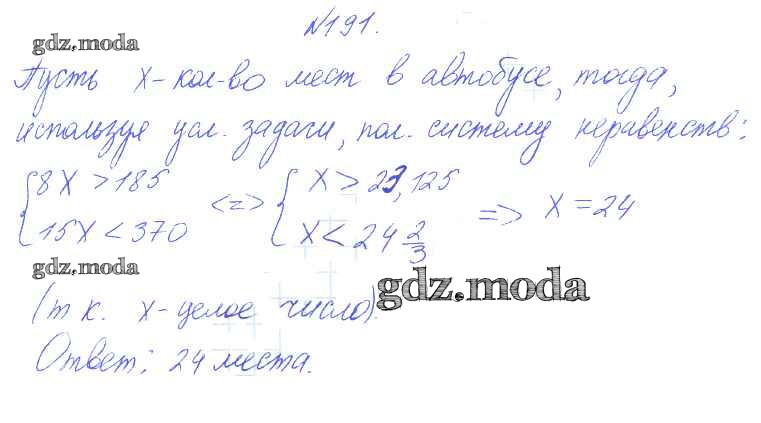 №191.
gdz.moda
Пусть x - кол-во мест в автобусе, тогда,
используя усл. задачи, пол. систему неравенств:
{ 8x > 185 <=> { x > 23,125 => x = 24
{ 15x < 370 { x < 24 2/3
gdz.moda
gdz.moda
(т к. x - целое число).
Ответ: 24 места.